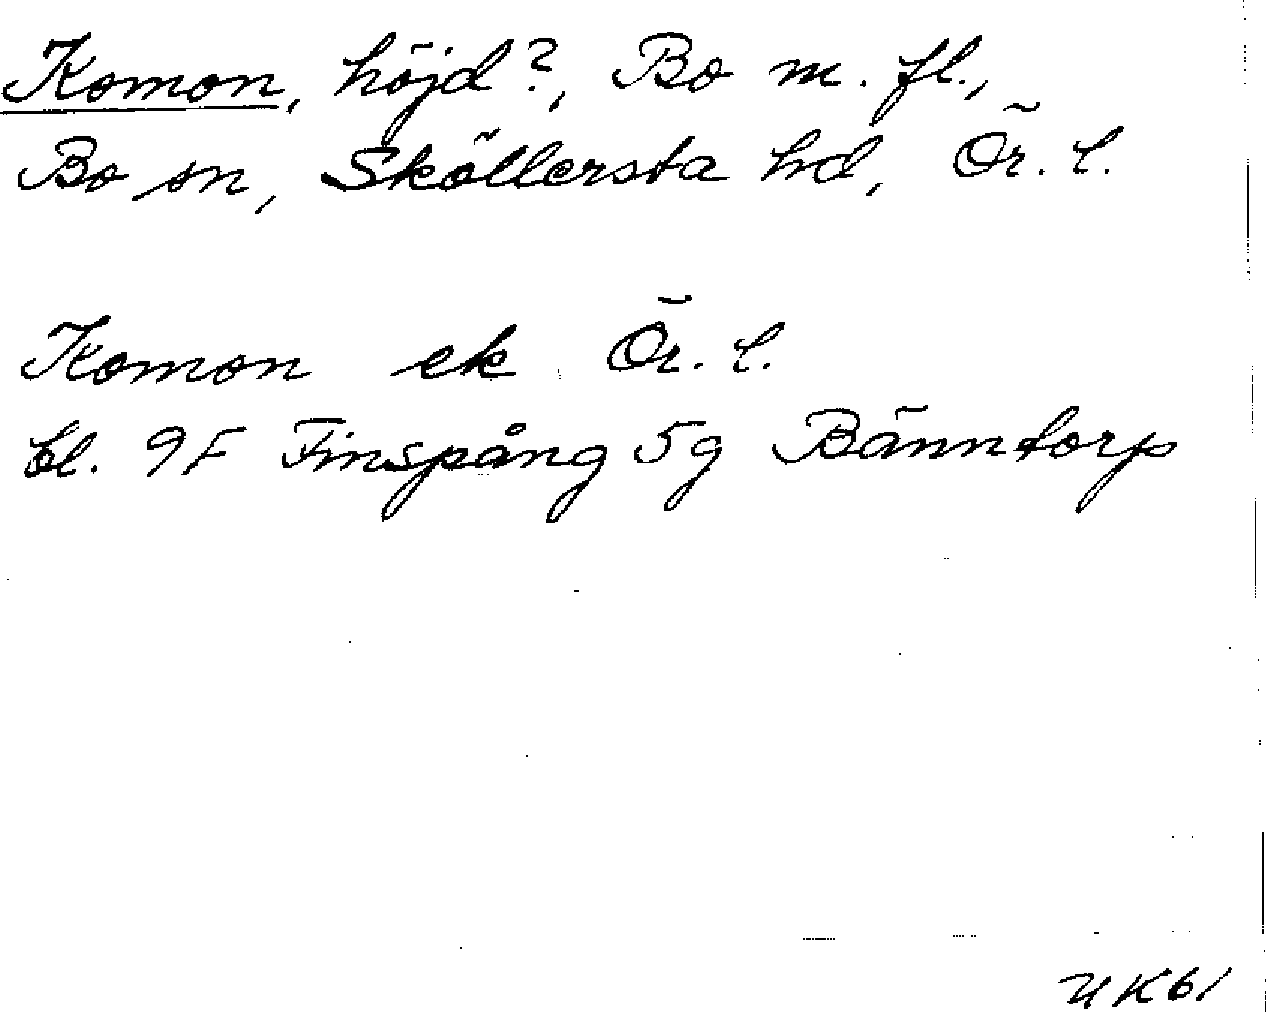 Komon, höjd?, Bo m. fl.,
Bo sn, Sköllersta hd, Ör. l.
Komon ek Ör. l.
bl. 9F Finspång 5g Bänntorp
UKbl